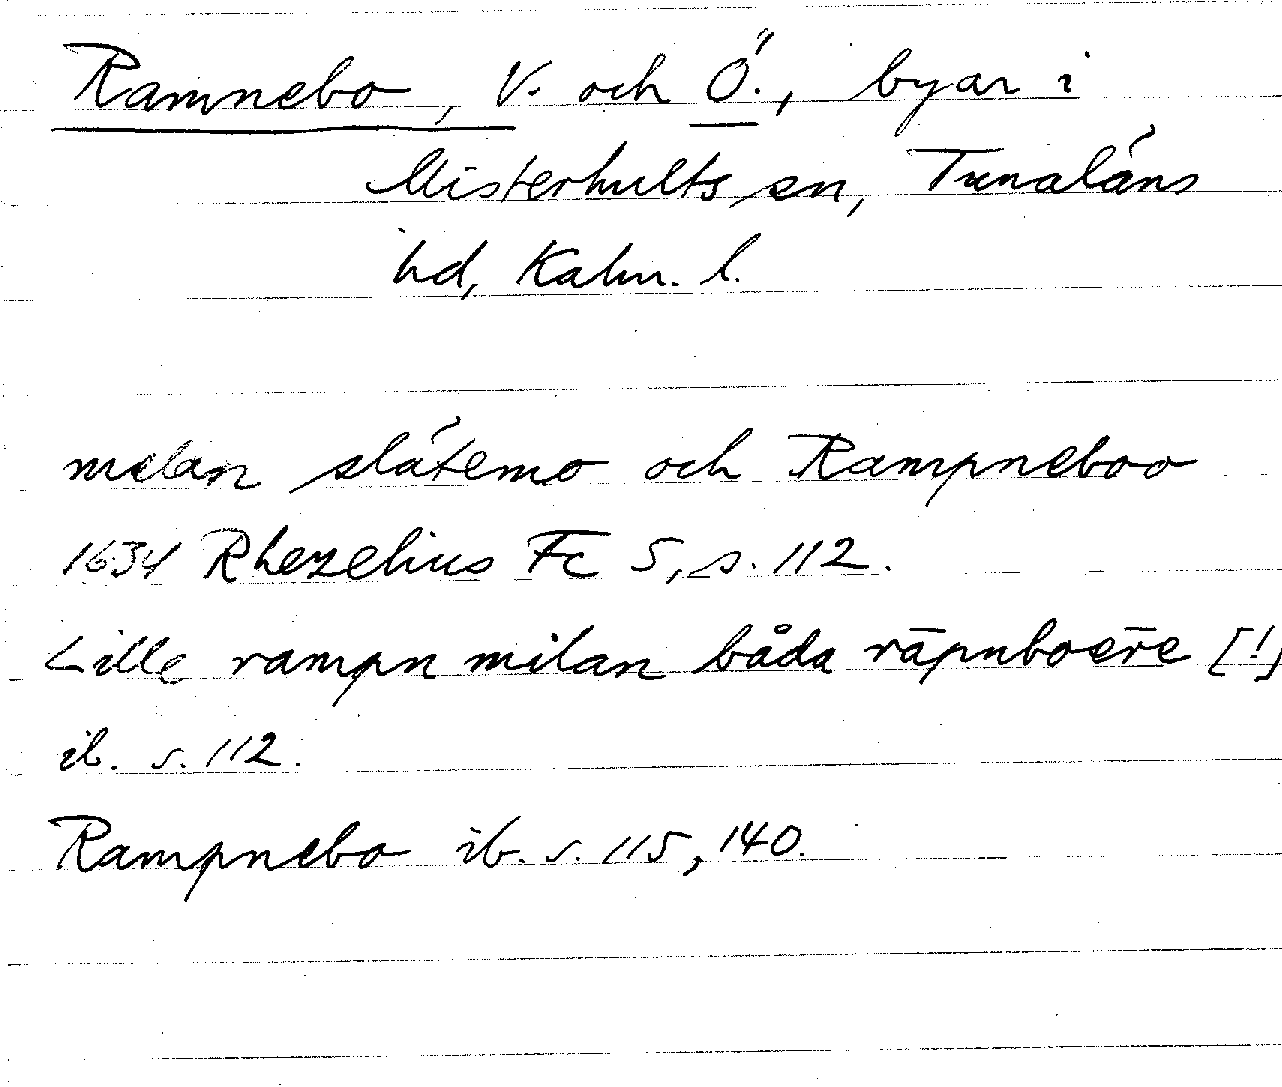 Ramnebo, V. och Ö., byar i
Misterhults sn, Tunaläns
hd, Kalm. l.
melan slätemo och Rampneboo
1634 Rhezelius Fc 5, s. 112.
Lille rampn milan båda rāpnboer̄e [!]
ib. s. 112.
Rampnebo ib. s. 115, 140.